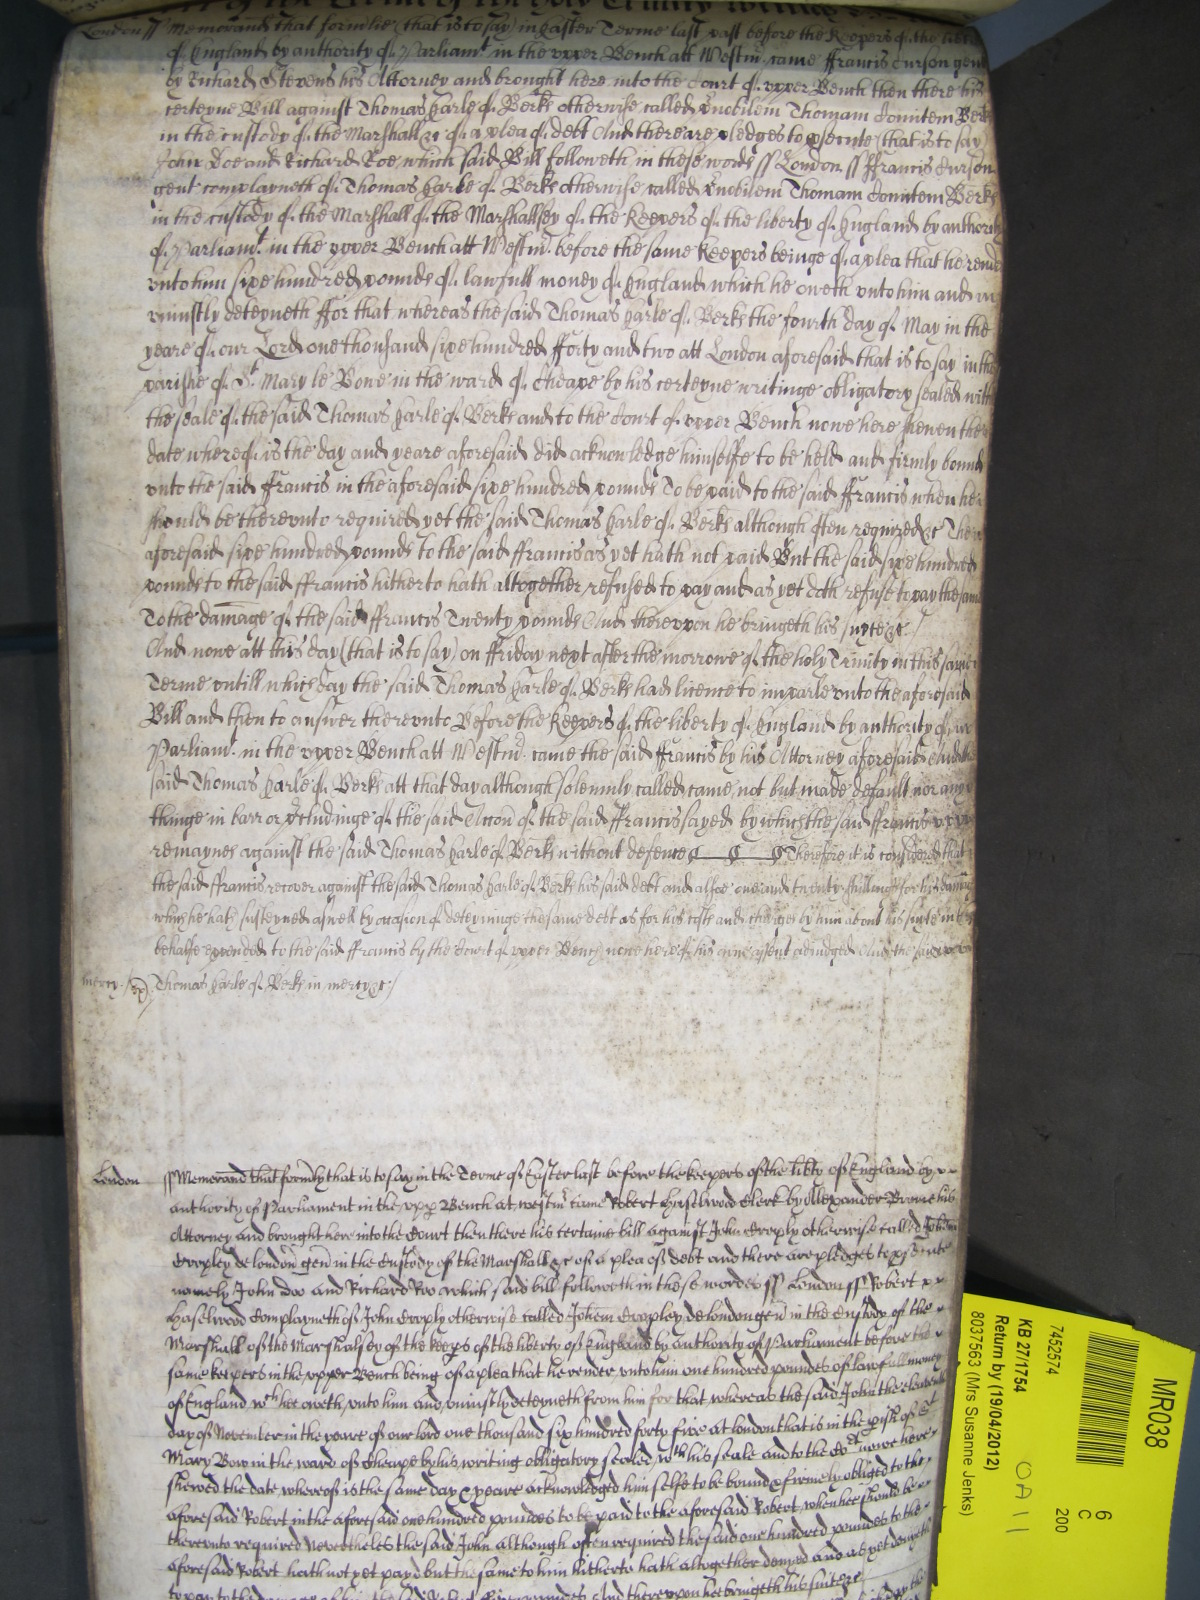 London ss Memorand that formerlie (that is to say) in Easter Terme last past before the Keepers of the
of England by authority of Parliamt in the upper Bench att Westmr came ffrancis Curson gen
by Richard Stevens his Attorney and brought here into the Court of upper Bench then there his
certeyne Bill against Thomas Earle of Berks otherwise called Thomam Comitem Berk
in the custody of the Marshall &c of a plea of debt And there are pledges to prosecute (that is to say)
John Doe and Richard Roe which said Bill followeth in these words ss London ss ffrancis Curson
gent complayneth of Thomas Earle of Berks otherwise called Thomam Comitem Berks
in the custody of the Marshall of the Marshallsey of the Keepers of the liberty of England by authority
of Parliamt in the upper Bench att Westmr before the same Keepers beinge of a plea that he render
unto him sixe hundred pounds of lawfull money of England which he oweth unto him and
uniustly deteyneth ffor that whereas the said Thomas Earle of Berks the fourth day of May in the
yeare of our Lord one thousand sixe hundred fforty and two att London aforesaid that is to say in the
parishe of St Mary le Bowe in the ward of Cheape by his certeyne writinge obligatory sealed with
the seale of the said Thomas Earle of Berks and to the Court of upper Bench nowe here shewen the
date whereof is the day and yeare aforesaid did acknowledge himselfe to be held and firmly bound
unto the said ffrancis in the aforesaid sixe hundred pounds To be paid to the said ffrancis when he
should be thereunto required yet the said Thomas Earle of Berks although often required &c The
aforesaid sixe hundred pounds to the said ffrancis as yet hath not paid But the said sixe hundred
pounds to the said ffrancis hitherto hath altogether refused to pay and as yet doth refuse to pay the same
To the damage of the said ffrancis Twenty pounds And thereupon he bringeth his suyte &c
And nowe att this day (that is to say) on ffriday next after the morrowe of the holy Trinity in this same
Terme untill which day the said Thomas Earle of Berks had licence to imparle unto the aforesaid
Bill and then to answer thereunto Before the Keepers of the liberty of England by authority of
Parliamt in the upper Bench att Westmr came the said ffrancis by his Attorney aforesaid And the
said Thomas Earle of Berks att that day although solemnly called came not but made default nor any
thinge in barr or precludinge of the said Accon of the said ffrancis sayed by which the said ffrancis
remaynes against the said Thomas Earle of Berks without defence Therefore it is considered that
the said ffrancis recover against the said Thomas Earle of Berks his said debt and alsoe one and twenty shillings for his damages
which he hath susteyned aswell by occasion of deteyninge the same debt as for his costs and charges by him about his suyte in
behalfe expended to the said ffrancis by the Court of upper Bench nowe here of his owne assent adiudged And the said
mercy Thomas Earle of Berks in mercy &c
London ss Memorand that formerly that is to say in the Terme of Easter last before the keepers of the libty of England by
authority of Parliament in the upp Bench at Westmr came Robert Haselwood Clerk by Alexander Brome his
Attorney and brought here into the Court then there his certaine bill against John Cropley otherwise called Johem
Cropley de london gen in the custody of the Marshall &c of a plea of debt and there are pledges to prosecute
namely John Doo and Richard Roo which said bill followeth in these wordes ss London ss Robert
Haselwood Complayneth of John Cropley otherwise called Johem Cropley de london gen in the Custody of the
Marshall of the Marshalsey of the keeps of the liberty of England by authority of Parliament before the
same keepers in the upper Bench being of a plea that he render unto him one hundred poundes of lawfull money
of England wch he oweth unto him and uniustly deteyneth from him for that whereas the said John the eleaventh
day of November in the yeare of our lord one thousand six hundred forty five at london that is in the pish of St
Mary Bow in the ward of Cheape by his writing obligatory sealed wth his seale and to the Court nowe here
shewed the date whereof is the same day & yeare acknowledged him selfe to be bound & firmely obliged to the
aforesaid Robert in the aforesaid one hundred poundes to be paid to the aforesaid Robert when hee should be
thereunto required Nevertheles the said John although often required the said one hundred poundes to the
aforesaid Robert hath not yet payd but the same to him hitherto hath altogether denied and as yet denyeth
to pay to the damage And thereupon hee bringeth his suite &c
MR038
6
C
200
7452574
KB 27/1754
Return by (19/04/2012)
8037563 (Mrs Susanne Jenks)
OA 11